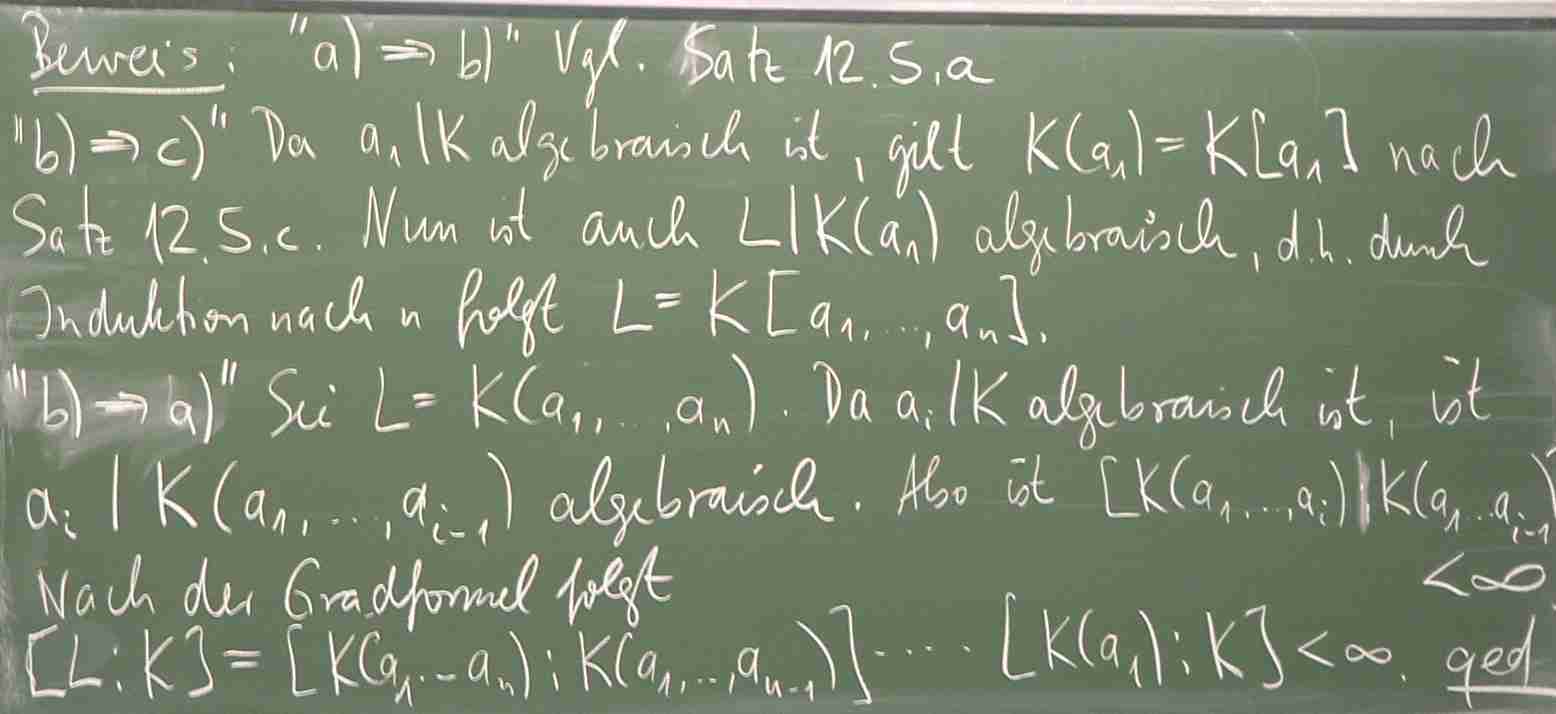 Beweis: "a) ⇒ b)" Vgl. Satz 12.5.a
"b) ⇒ c)" Da a₁|K algebraisch ist, gilt K(a₁) = K[a₁] nach
Satz 12.5.c. Nun ist auch L|K(a₁) algebraisch, d.h. durch
Induktion nach n folgt L = K[a₁,...,aₙ].
"b) ⇒ a)" Sei L = K(a₁,...,aₙ). Da aᵢ|K algebraisch ist, ist
aᵢ | K(a₁,...,aᵢ₋₁) algebraisch. Also ist [K(a₁,...,aᵢ)|K(a₁...aᵢ₋₁)]
< ∞
Nach der Gradformel folgt
[L:K] = [K(a₁...aₙ):K(a₁,...,aₙ₋₁)]·····[K(a₁):K] < ∞. qed